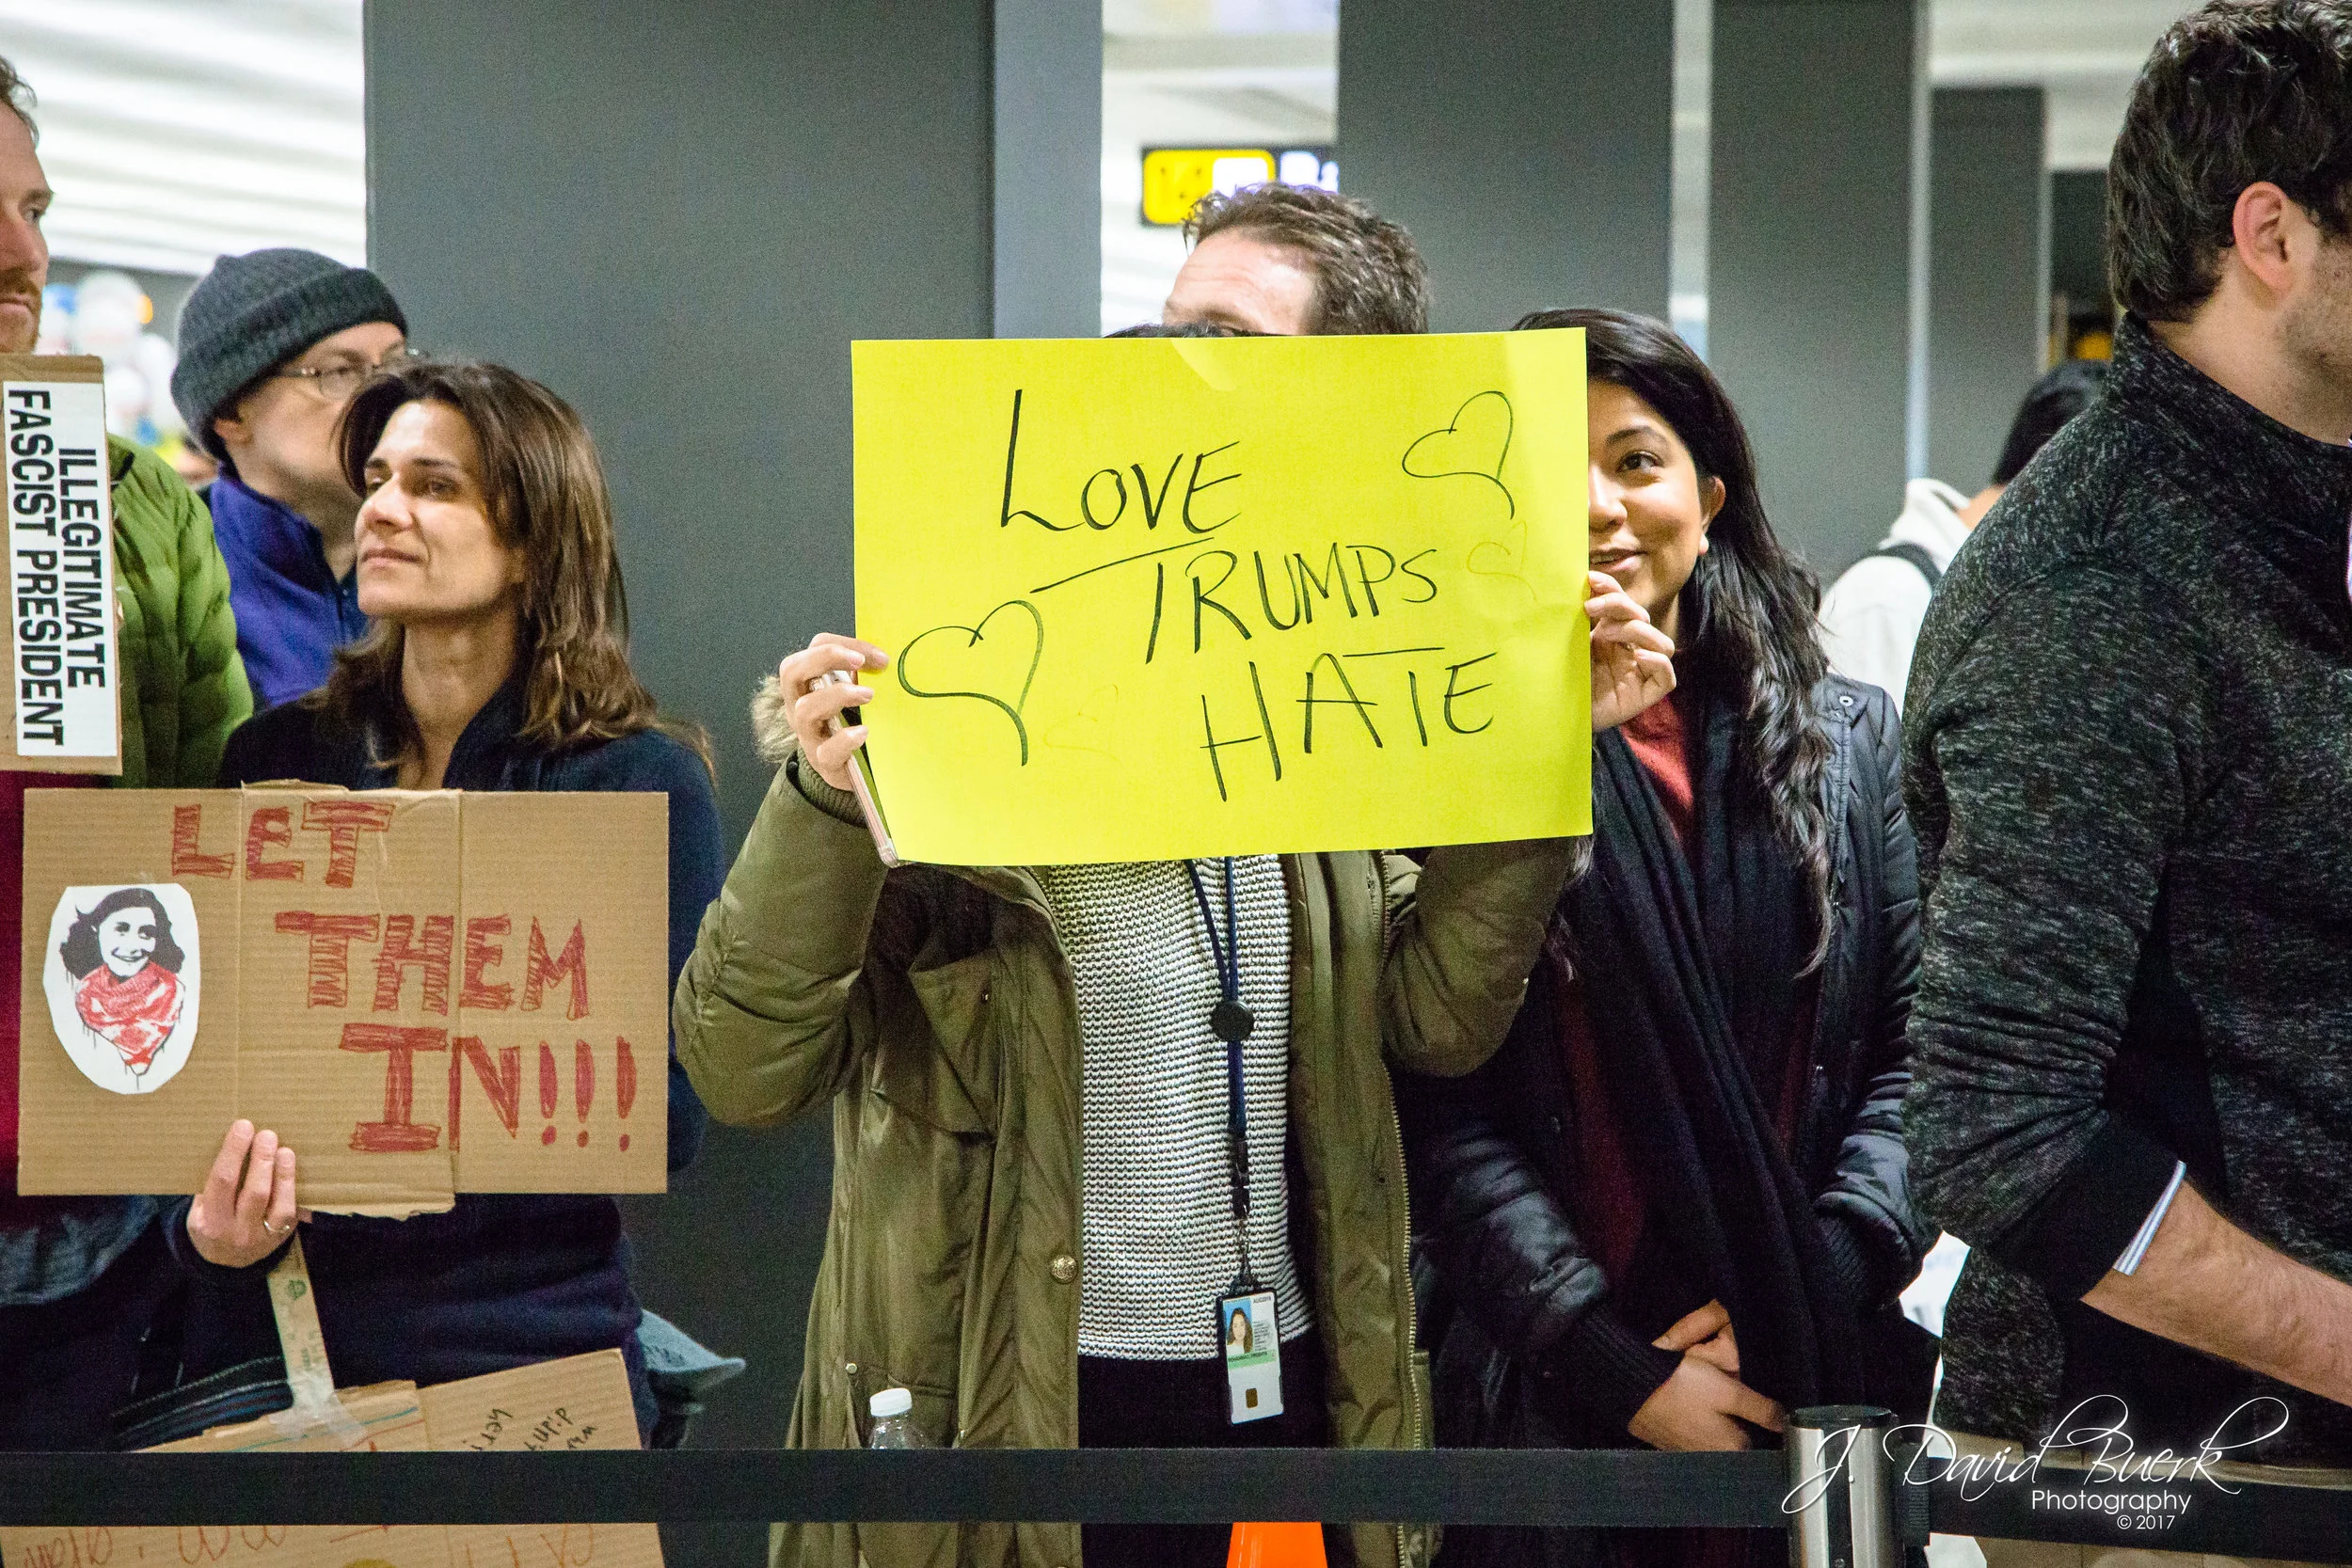 ILLEGITIMATE
FASCIST PRESIDENT
LET
THEM
IN!!!
LOVE
TRUMPS
HATE
J. David Buerk
Photography
© 2017